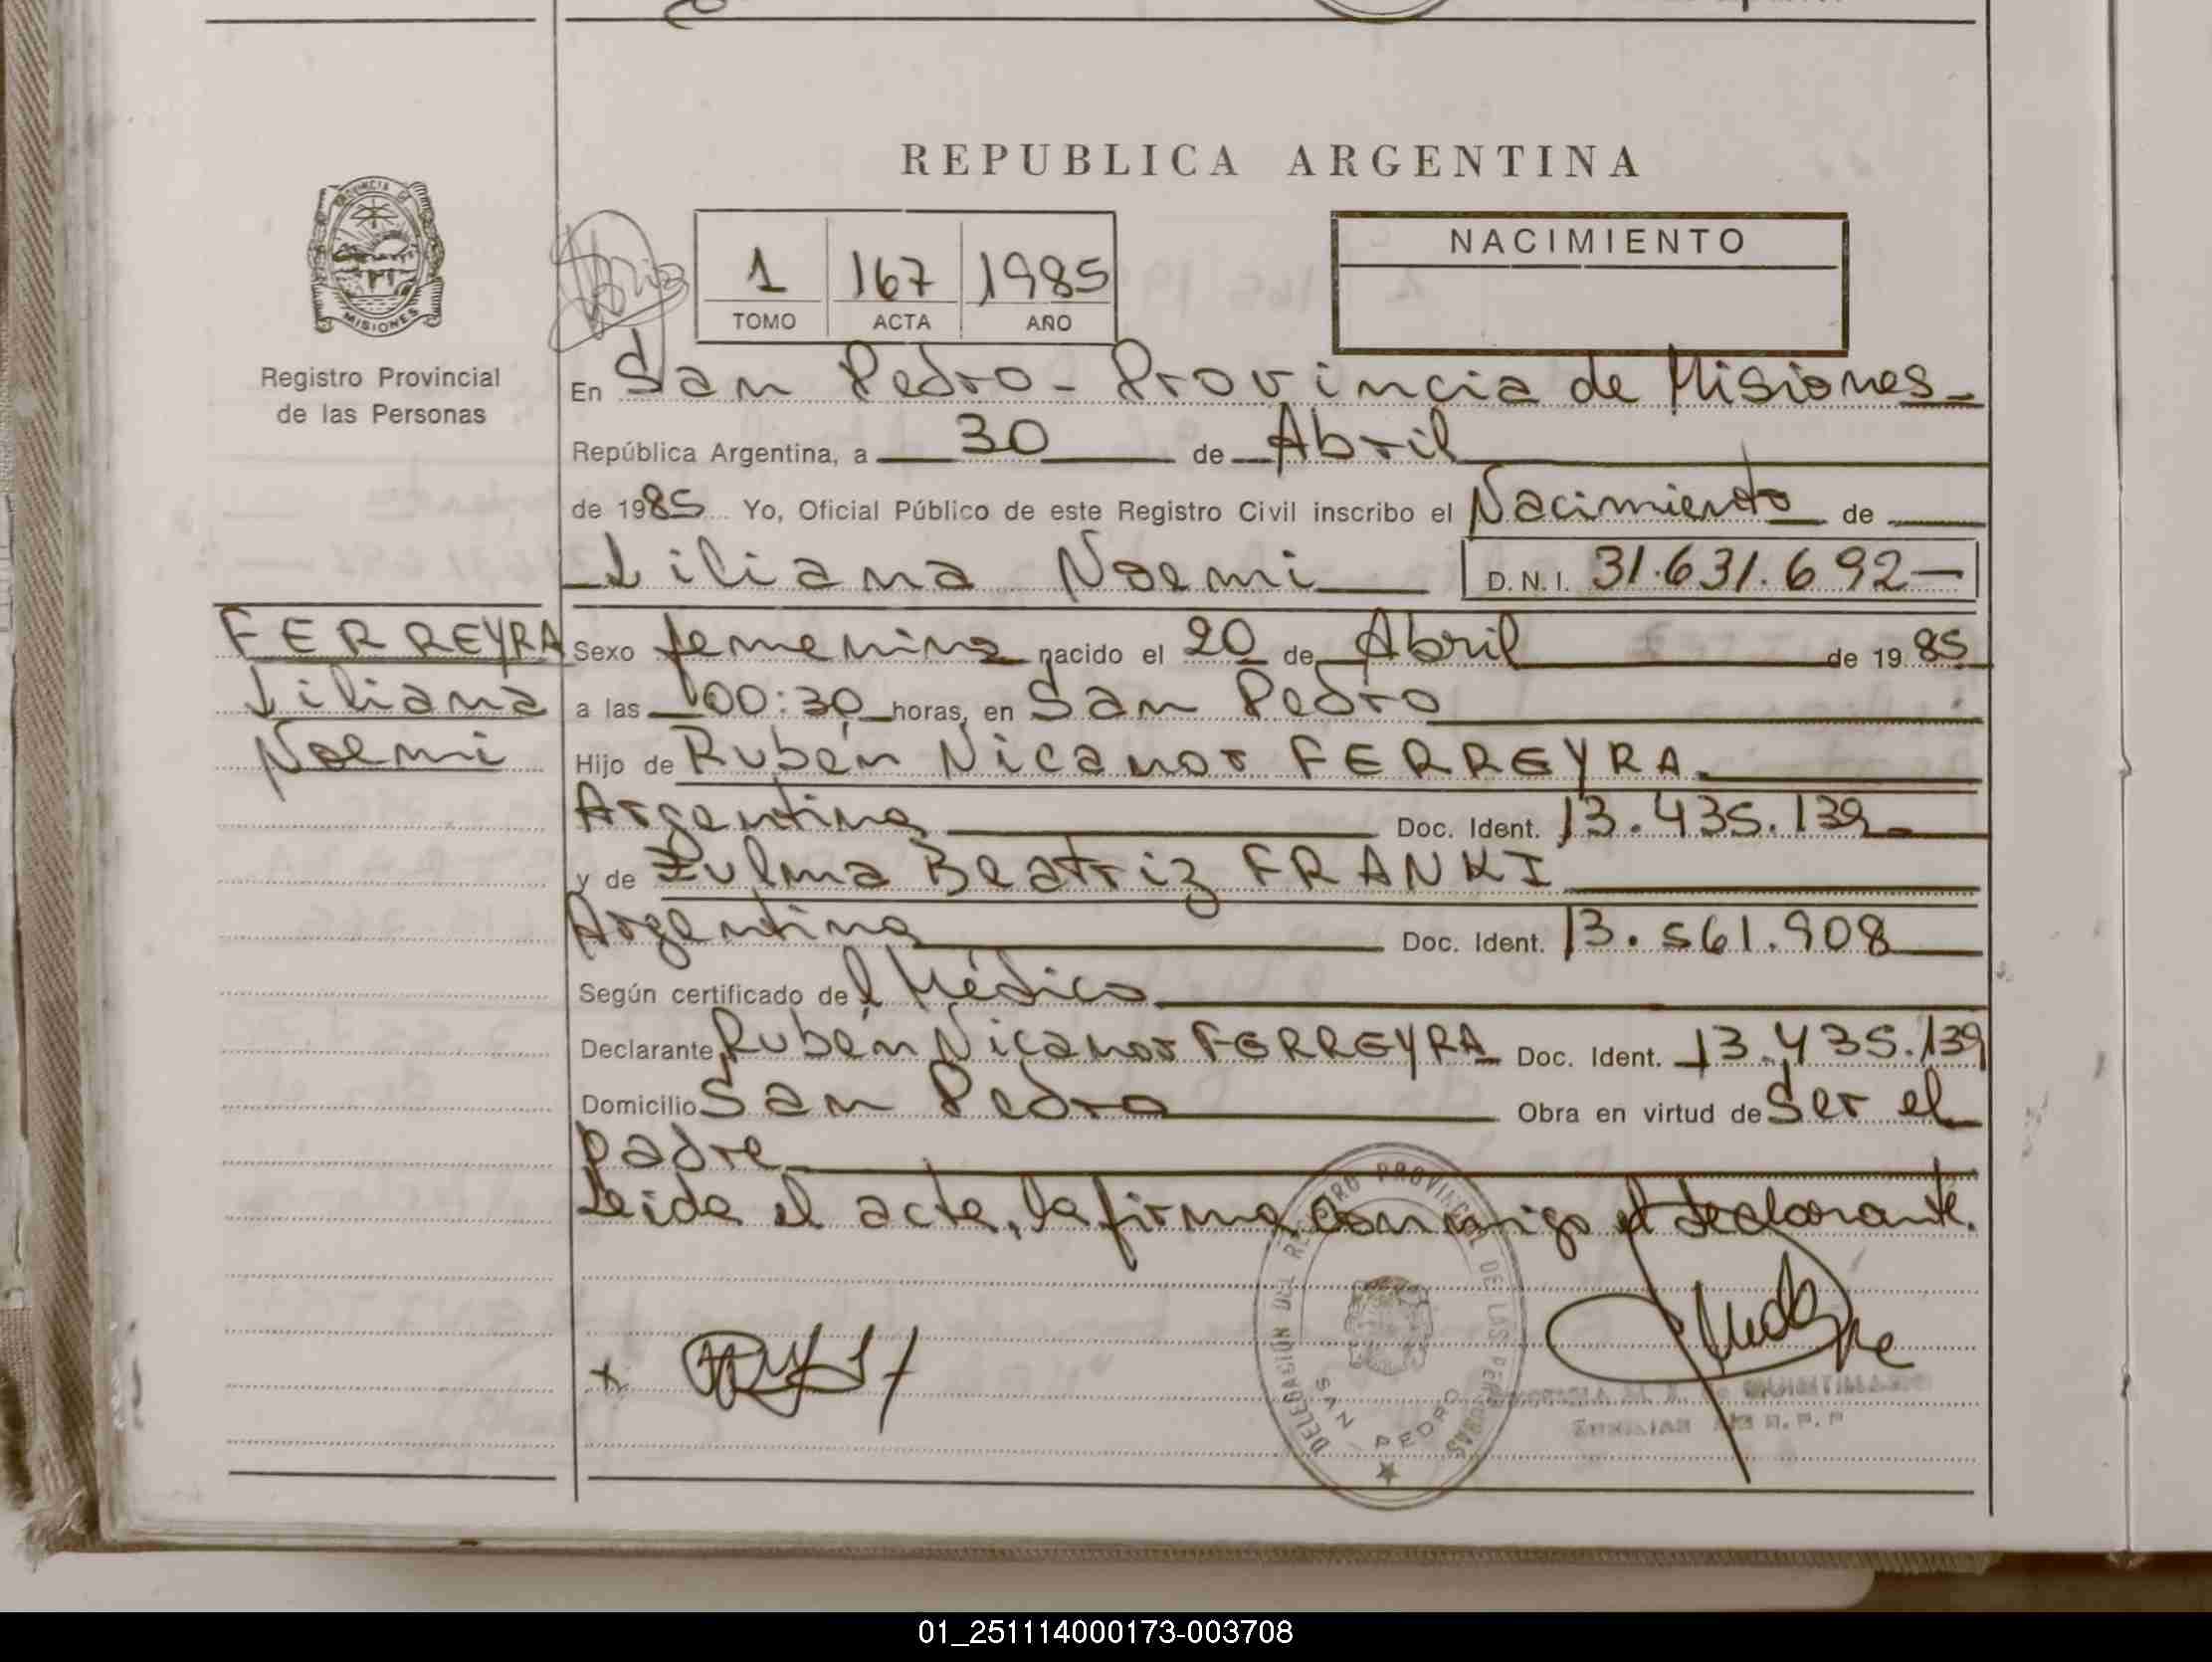 REPUBLICA ARGENTINA
PROVINCIA
MISIONES
Registro Provincial
de las Personas
1 167 1985
TOMO ACTA AÑO
NACIMIENTO
En San Pedro - Provincia de Misiones
República Argentina, a 30 de Abril
de 1985 Yo, Oficial Público de este Registro Civil inscribo el Nacimiento de
Liliana Noemi D.N.I. 31.631.692
FERREYRA
Liliana
Noemi
Sexo femenino nacido el 20 de Abril de 1985
a las 00:30 horas, en San Pedro
Hijo de Rubén Nicanor FERREYRA
Argentina Doc. Ident. 13.435.139
y de Zulma Beatriz FRANKI
Argentina Doc. Ident. 13.561.908
Según certificado del Médico
Declarante Rubén Nicanor FERREYRA Doc. Ident. 13.435.139
Domicilio San Pedro Obra en virtud de Ser el
padre
Leida el acta, la firma conmigo el declarante.
DELEGACION DEL REGISTRO PROVINCIAL DE LAS PERSONAS
SAN PEDRO
01_251114000173-003708